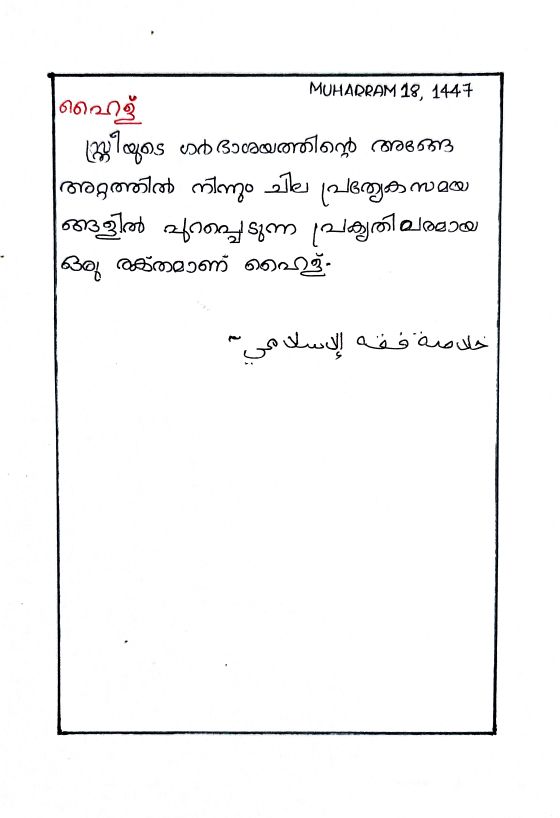 MUHARRAM 18, 1447
ഹൈള്
സ്ത്രീയുടെ ഗർഭാശയത്തിന്റെ അങ്ങേ
അറ്റത്തിൽ നിന്നും ചില പ്രത്യേക സമയ
ങ്ങളിൽ പുറപ്പെടുന്ന പ്രകൃതിപരമായ
ഒരു രക്തമാണ് ഹൈള്.
خلاصة فقه الإسلامي ~